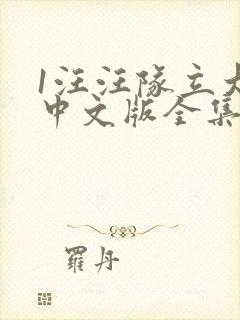 1汪汪队立大
中文版全集
羅丹